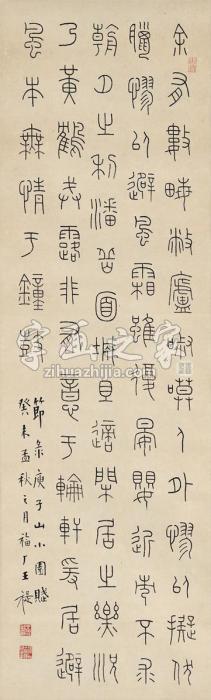 余有數畝敝廬寂嗼人外憀以擬伏
臘憀以避風霜雖復晏嬰近市不求
朝夕之利潘岳面城且適閑居之樂況
乃黃鶴戒露非有意于輪軒爰居避
風本無情于鐘鼓
節彔庚子山小園賦
癸未孟秋之月福厂王禔
字画之家
zihuazhijia.com